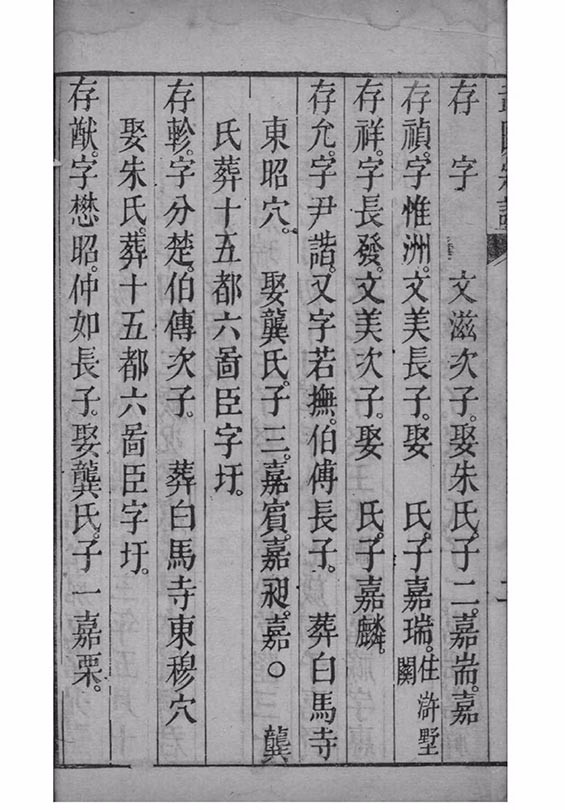 存　字　　文滋次子。娶朱氏。子二。嘉耑。嘉
存禎。字惟洲。文美長子。娶　氏。子嘉瑞。住滸墅關
存祥。字長發。文美次子。娶　氏。子嘉麟。
存允。字尹諧。又字若撫。伯傅長子。　葬白馬寺
東昭穴。　娶龔氏。子三。嘉賓。嘉昶。嘉○　龔
氏葬十五都六啚臣字圩。
存軫。字分楚。伯傳次子。　葬白馬寺東穆穴
娶朱氏。葬十五都六啚臣字圩。
存猷。字懋昭。仲如長子。娶龔氏。子一嘉栗。